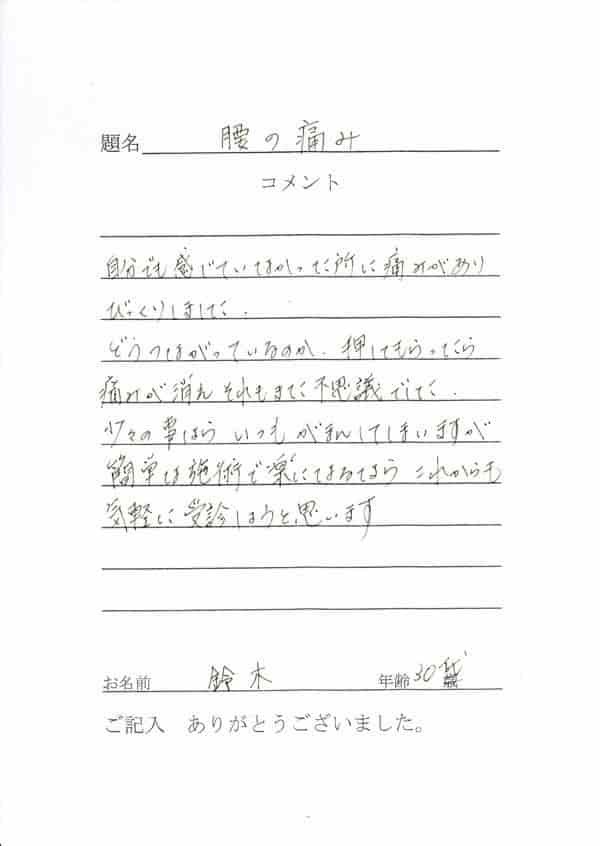 題名 腰の痛み
コメント
自分でも感じていなかった所に痛みがあり
びっくりしました.
どうつながっているのか. 押してもらったら
痛みが消え それもまた不思議でした.
少々の事なら いつも がまんしてしまいますが
簡単な施術で楽になるなら これからも
気軽に受診しようと思います
お名前 鈴木 年齢 30代
ご記入 ありがとうございました。